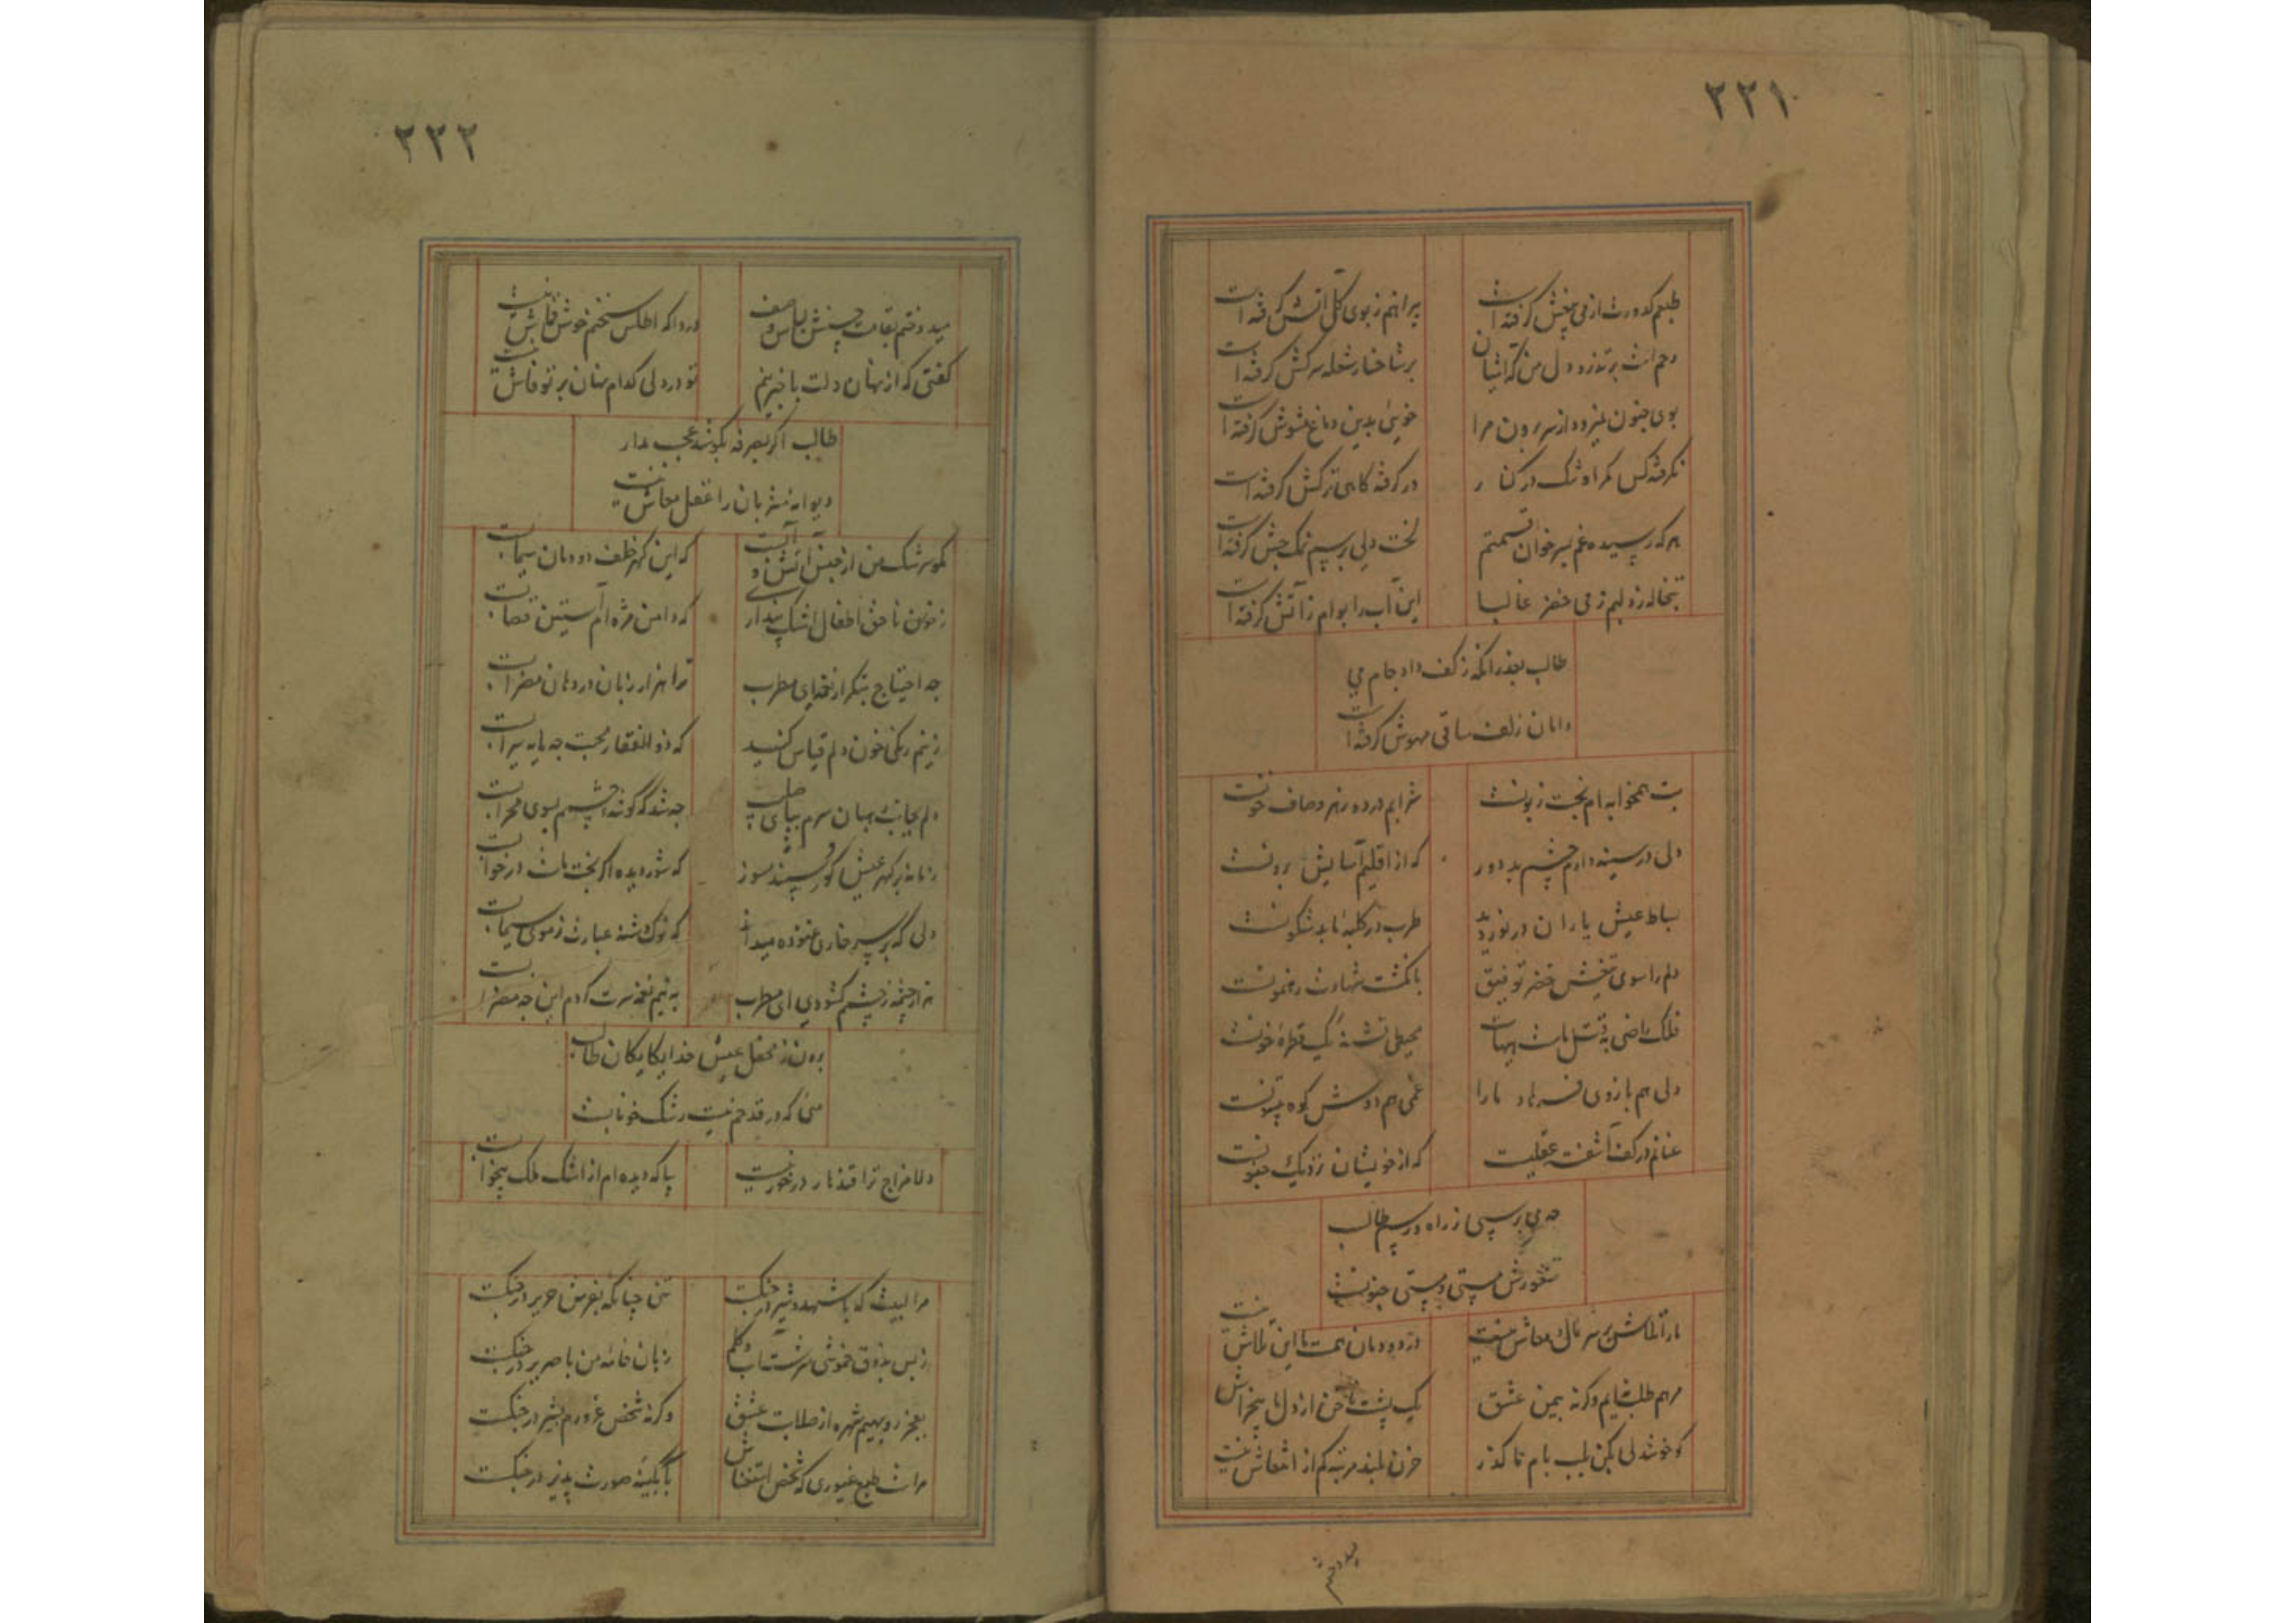 ۲۲۱
طبعم کدورت از می بیغش گرفته است
پیراهنم ز بوی گل آتش گرفته است
رحم است بر تذرو دل من که آشیان
بر شاخسار شعله سرکش گرفته است
بوی جنون نمیرود از سر برون مرا
خویی بدین دماغ مشوش گرفته است
نگرفته کس مراد تنک در کنار
در گرفته گاهی ترکش گرفته است
هر که رسیده غم بسر خوان قسمتم
لخت دلی برسم نمک چش گرفته است
تبخاله زد لبم ز می خضر غالبا
این آب را بوام ز آتش گرفته است
طالب بعذر آنکه ز کف داد جام می
دامان زلف ساقی مهوش گرفته است
بت همخوابه ام بخت زبونست
شرابم درد زهر و صاف خونست
دلی در سینه دارم چشم بد دور
که از اقلیم آسایش برونست
بساط عیش یاران در نوردید
طرب در کلبه ما بد شگونست
دلم را سوی تیغش خضر توفیق
بانگشت شهادت رهنمونست
فلک راضی به قتل ماست هیهات
محیطی تشنه یک قطره خونست
دلی هم بازوی فرهاد ما را
غمی هم دوش کوه بیستونست
عنانم در کف آشفته عقلیست
که از خویشان نزدیک جنونست
چه می پرسی ز راه و رسم طالب
شعورش مستی و مستی جنونست
ما را تلاش بر سر مال و معاش نیست
در دودمان همت ما این تلاش نیست
مرهم طلب نه ایم وگرنه بیمن عشق
یک پشت ناخن از دل ما بیخراش نیست
گو خوشدلی مکن بلب بام ما گذر
حزن بلند مرتبه کم از انتعاش نیست
میدوختم
۲۲۲
میدوختم بقامت حسنش لباس وصف
دردا که اطلس سخنم خوش قماش نیست
گفتی که از نهان دلت با خبر نیم
تو در دلی کدام نهان بر تو فاش نیست
طالب اگر بصرفه نکوشد عجب مدار
دیوانه مشربان را عقل معاش نیست
گو سرشک من از جنس آتش و آبست
که این گهر خلف دودمان سیمابست
ز خون ناحق اطفال اشک پنداری
که دامن مژه ام آستین قصابست
چه احتیاج بتکرار نغمه ای مطرب
ترا هزار زبان در دهان مضرابست
ز نیم رنگی خون دلم قیاس کنید
که ذوالفقار محبت چه مایه سیرابست
دلم بجانب بستان سرم بپای صلیب
چه شد که گوشه چشمم بسوی محرابست
زمانه بر گهر عیش گو سپند مسوز
که شور دیده اگر بخت ماست در خوابست
دلی که بر سر خاری غنوده میداند
که نوک دشنه عبارت ز موی سنجابست
هزار چشمه ز چشمم گشودی ای مطرب
به نیم نغمه سرت گردم این چه مضرابست
برون ز محفل عیش خدایگان طالب
مئی که در قدحم نیست رشک خونابست
دلا مزاج ترا قند نار در خور نیست
بیا که دیده ام از اشک ملک بیخوابست
مرا لبیست که با شهد و شیر در جنگست
تنی چنانکه بفرش حریر در جنگست
ز بس بذوق خموشی سرشت آب و گلم
زبان خامه من با صریر در جنگست
بعجز روبهیم شهره از صلابت عشق
وگرنه شخص غرورم بشیر در جنگست
مراست طبع غیوری که شخص استغناش
بآبگینه صورت پذیر در جنگست